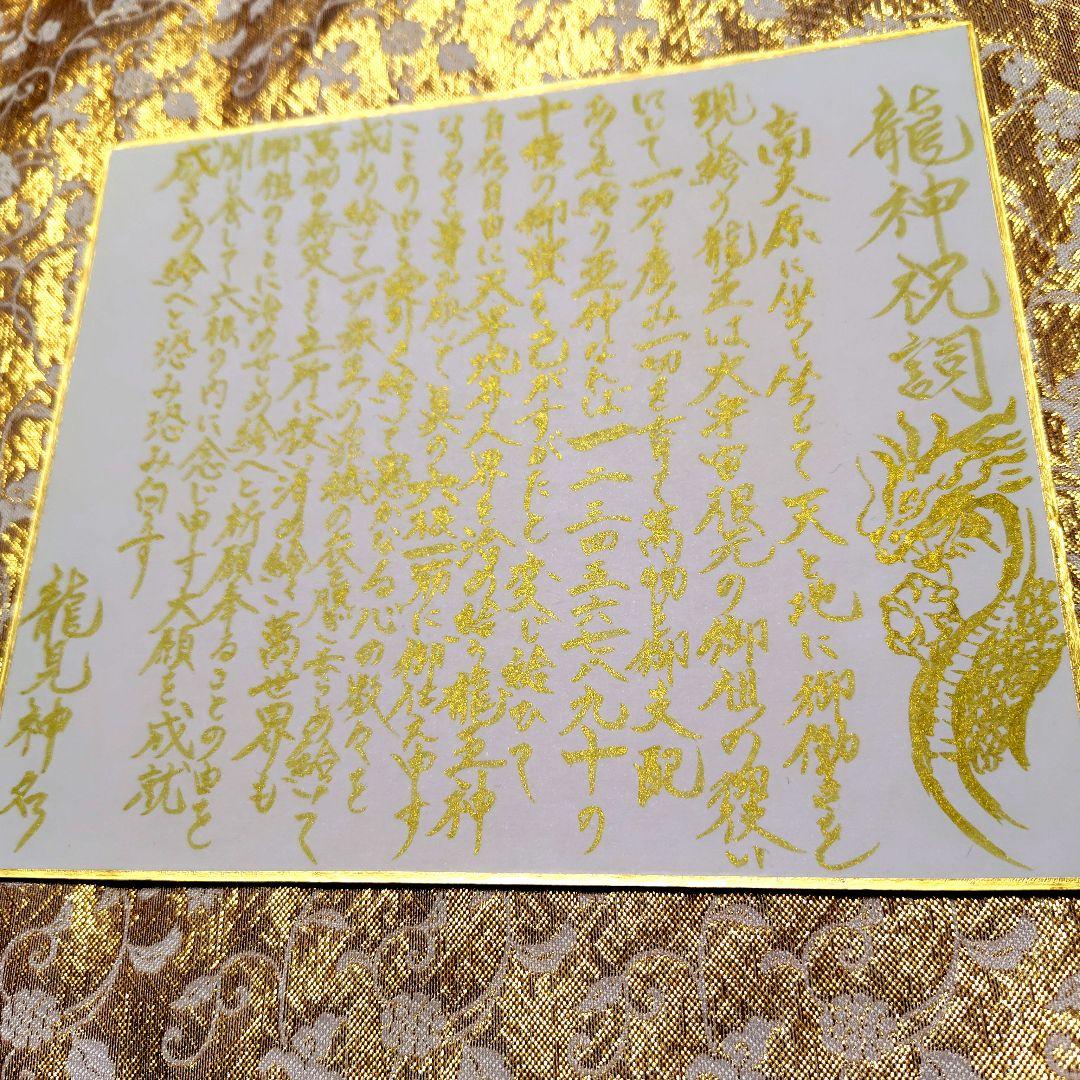 龍神祝詞
高天原に坐し坐して天と地に御働きを
現し給う龍王は大宇宙根元の御祖の御使い
にして一切を産み一切を育て萬物を御支配
あらせ給う王神なれば一二三四五六七八九十の
十種の御寳を己がすがたと変じ給いて
自在自由に天界地界人界を治め給う龍王神
なるを尊み敬いて真の六根一筋に御仕え申す
ことの由を受引き給いて愚かなる心の数々を
戒め給いて一切衆生の罪穢の衣を脱ぎさらしめ給いて
萬物の病災をも立所に祓い清め給い萬世界も
御祖のもとに治めせしめ給へと祈願奉ることの由を
聞食して六根の内に念じ申す大願を成就
成さしめ給へと恐み恐み白す
龍見神名